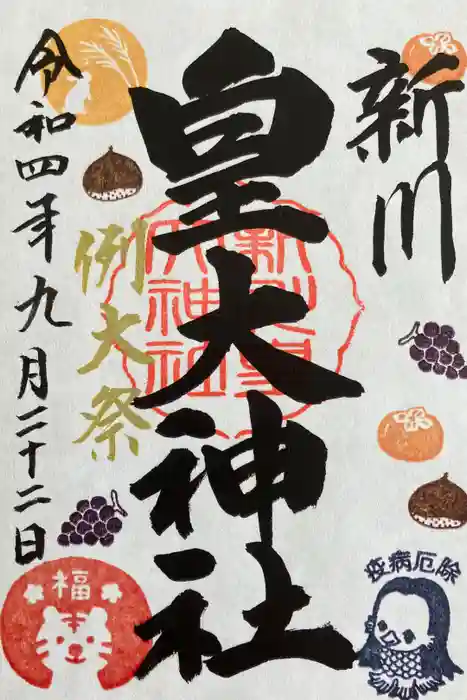 新川
皇大神社
例大祭
令和四年九月二十二日
福
疫病厄除